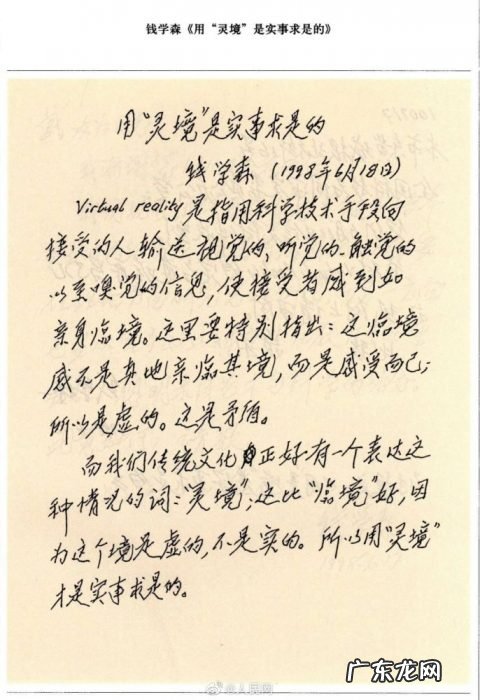 钱学森《用“灵境”是实事求是的》
用“灵境”是实事求是的
钱学森（1998年6月18日）
Virtual reality是指用科学技术手段向
接受的人输送视觉的、听觉的、触觉的
以至嗅觉的信息，使接受者感到如
亲身临境。这里要特别指出：这临境
感不是真地亲临其境，而是感受而已；
所以是虚的。这是矛盾。
而我们传统文化正好有一个表达这
种情况的词：“灵境”；这比“临境”好，因
为这个境是虚的，不是实的。所以用“灵境”
才是实事求是的。
@人民网
广东龙网